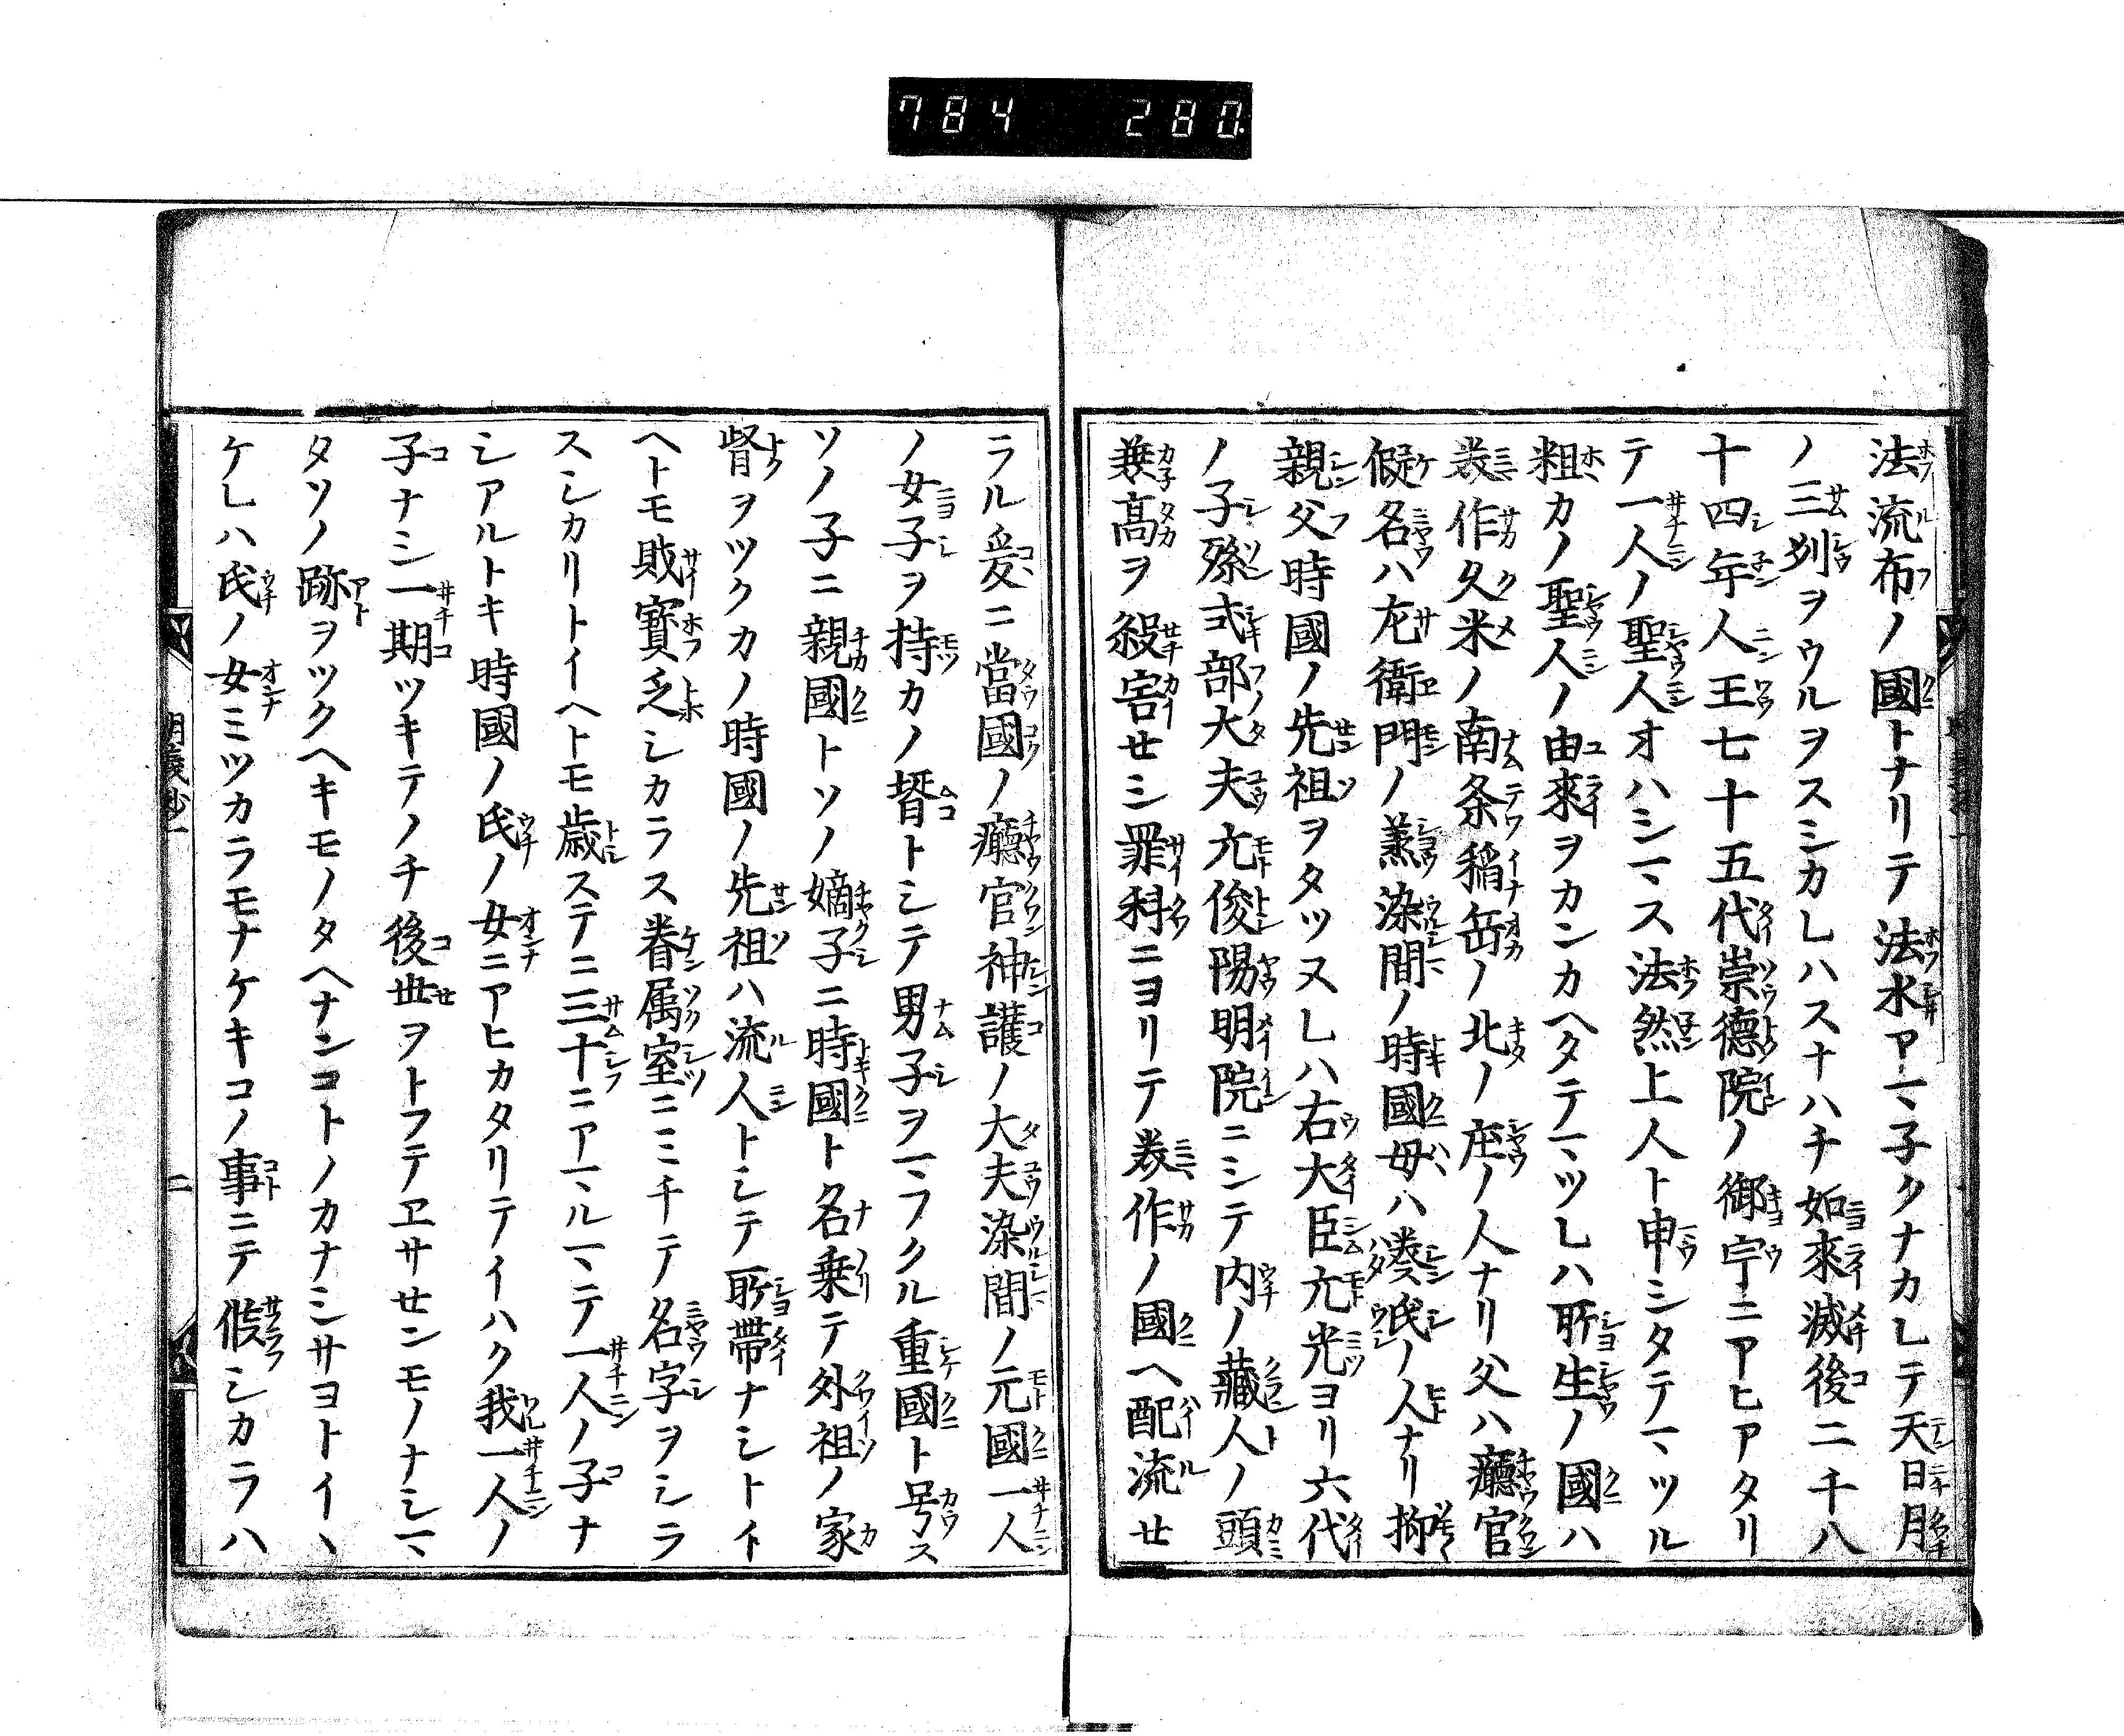 784 280
法流布ノ國トナリテ法水アマ子クナカレテ天日月
ノ三列ヲウルヲスシカレハスナハチ如來滅後二千八
十四年人王七十五代崇德院ノ御宇ニアヒアタリ
テ一人ノ聖人オハシマス法然上人ト申シタテマツル
粗カノ聖人ノ由來ヲカンカヘタテマツレハ所生ノ國ハ
美作久米ノ南条稲岳ノ北ノ庄ノ人ナリ父ハ廳官
假名ハ左衛門ノ漆間ノ時國母ハ秦氏ノ人ナリ抑
親父時國ノ先祖ヲタツヌレハ右大臣元光ヨリ六代
ノ子孫式部大夫元俊陽明院ニシテ内ノ藏人ノ頭
兼高ヲ殺害セシ罪科ニヨリテ美作ノ國ヘ配流セ
ラル爰ニ當國ノ廳官神護ノ大夫染間ノ元國一人
ノ女子ヲ持カノ壻トシテ男子ヲマフクル重國ト号ス
ソノ子ニ親國トソノ嫡子ニ時國ト名乗テ外祖ノ家
督ヲツクカノ時國ノ先祖ハ流人トシテ所帶ナシトイ
ヘトモ財寶乏シカラス眷属室ニミチテ名字ヲシラ
スシカリトイヘトモ歳ステニ三十ニアマルマテ一人ノ子ナ
シアルトキ時國ノ氏ノ女ニアヒカタリテイハク我一人ノ
子ナシ一期ツキテノチ後世ヲトフテヱサセンモノナシマ
タソノ跡ヲツクヘキモノタヘナンコトノカナシサヨトイヽ
ケレハ氏ノ女ミツカラモナケキコノ事ニテ候シカラハ
明義抄一
二